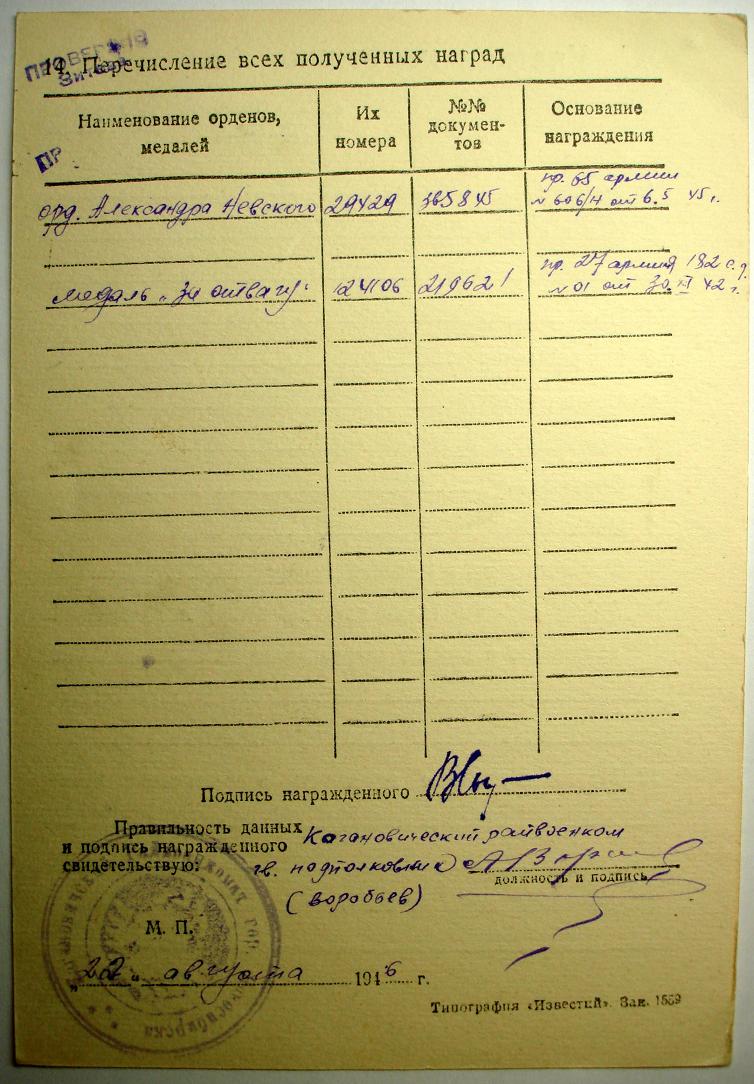 14. Перечисление всех полученных наград
Наименование орденов, медалей
Их номера
№№ документов
Основание награждения
ПР
орд. Александра Невского 29429 365845 пр. 65 армии
№ 606/н от 6.5 45 г.
медаль „За отвагу“ 124106 219621 пр. 27 армия 182 с.д.
№ 01 от 30.XI 42 г.
Подпись награжденного
Правильность данных
и подпись награжденного
свидетельствую:
Кагановический райвоенком
гв. подполковник
должность и подпись
(Воробьев)
М. П.
„22“ августа 1946 г.
Типография «Известий». Зак. 1559